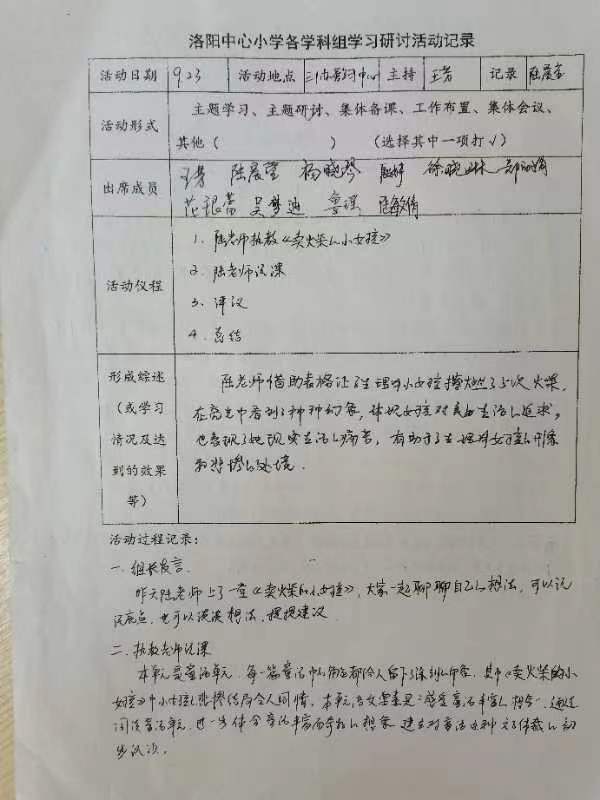 洛阳中心小学各学科组学习研讨活动记录
活动日期 9.23 活动地点 主持 王芳 记录 陆晨莹
活动形式 主题学习、主题研讨、集体备课、工作布置、集体会议、
其他（ ）（选择其中一项打√）
出席成员 王芳 陆晨莹 杨晓琴 徐晓琳
吴梦迪 陆敏倩
活动仪程
1. 陆老师执教《卖火柴的小女孩》
2. 陆老师说课
3. 评议
4. 总结
形成综述（或学习情况及达到的效果等）
陆老师借助表格让学生理解小女孩擦燃了5次火柴，
在亮光中看到了种种幻象，体现女孩对美好生活的追求，
也表现了她现实生活的痛苦，有助于学生理解女孩的形象
和悲惨的处境.
活动过程记录：
一. 组长发言.
昨天陆老师上了一堂《卖火柴的小女孩》，大家一起聊聊自己的想法，可以说
说亮点，也可以谈谈想法，提提建议.
二. 执教老师说课
本单元是童话单元，每一篇童话中的都令人留下了深刻的印象，其中《卖火柴的小
女孩》中小女孩悲惨结局令人同情。本单元语文要素是：感受童话丰富的想象. 通过
阅读童话单元，进一步体会童话丰富而奇妙的想象 建立对童话这种文体的初
步认识。